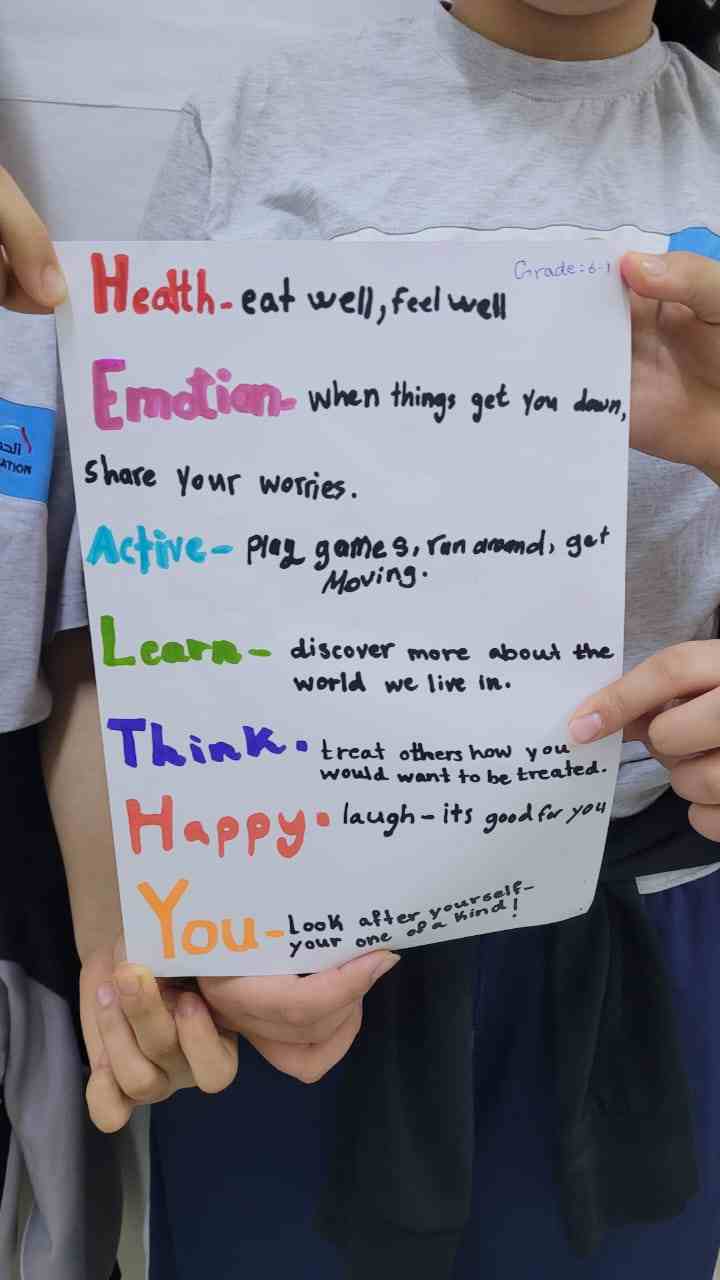 Grade: 6-1
Health- eat well, feel well
Emotion- when things get you down,
share your worries.
Active- play games, run around, get
Moving.
Learn- discover more about the
world we live in.
Think. treat others how you
would want to be treated.
Happy. laugh- its good for you
You- Look after yourself-
your one of a kind!
الحد
ATION